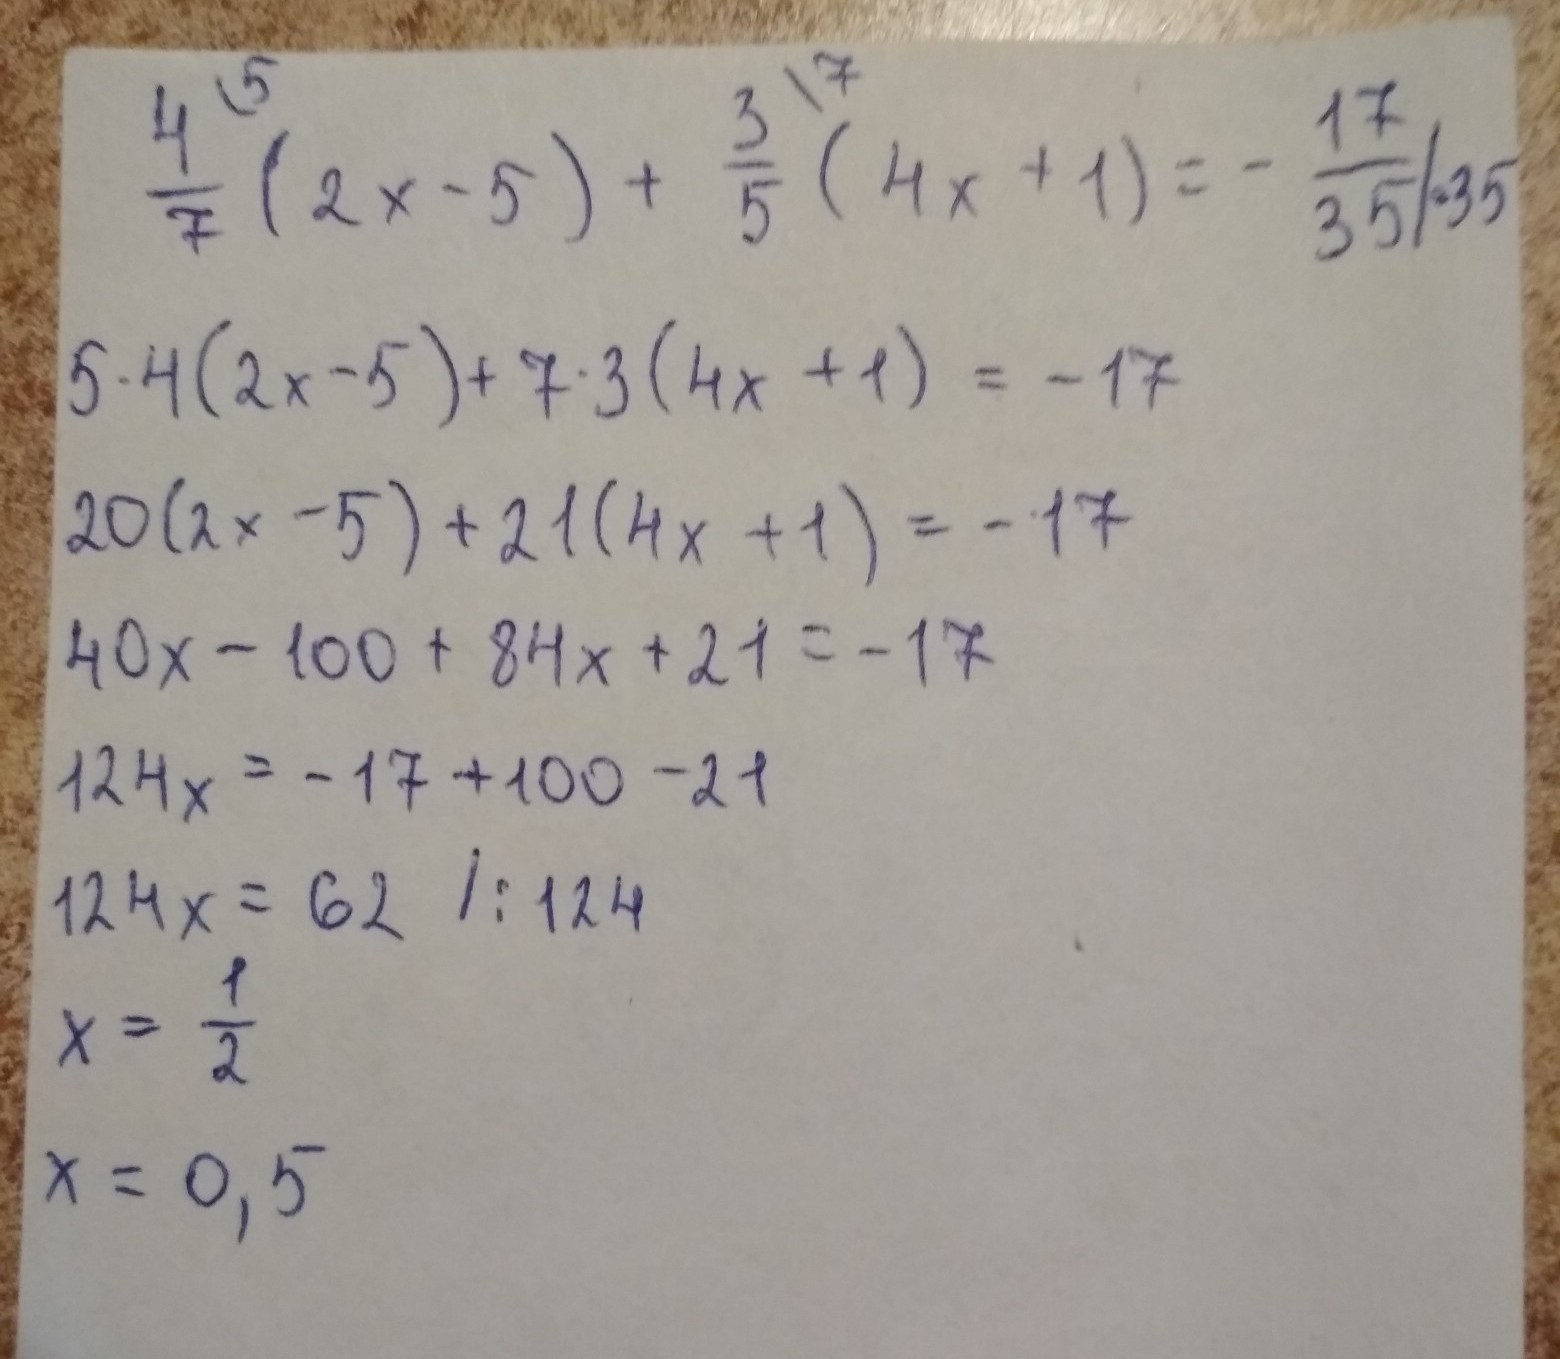 4/7 \5 (2x - 5) + 3/5 \7 (4x + 1) = - 17/35 /·35
5·4(2x - 5) + 7·3(4x + 1) = -17
20(2x - 5) + 21(4x + 1) = -17
40x - 100 + 84x + 21 = -17
124x = -17 + 100 - 21
124x = 62 /: 124
x = 1/2
x = 0,5